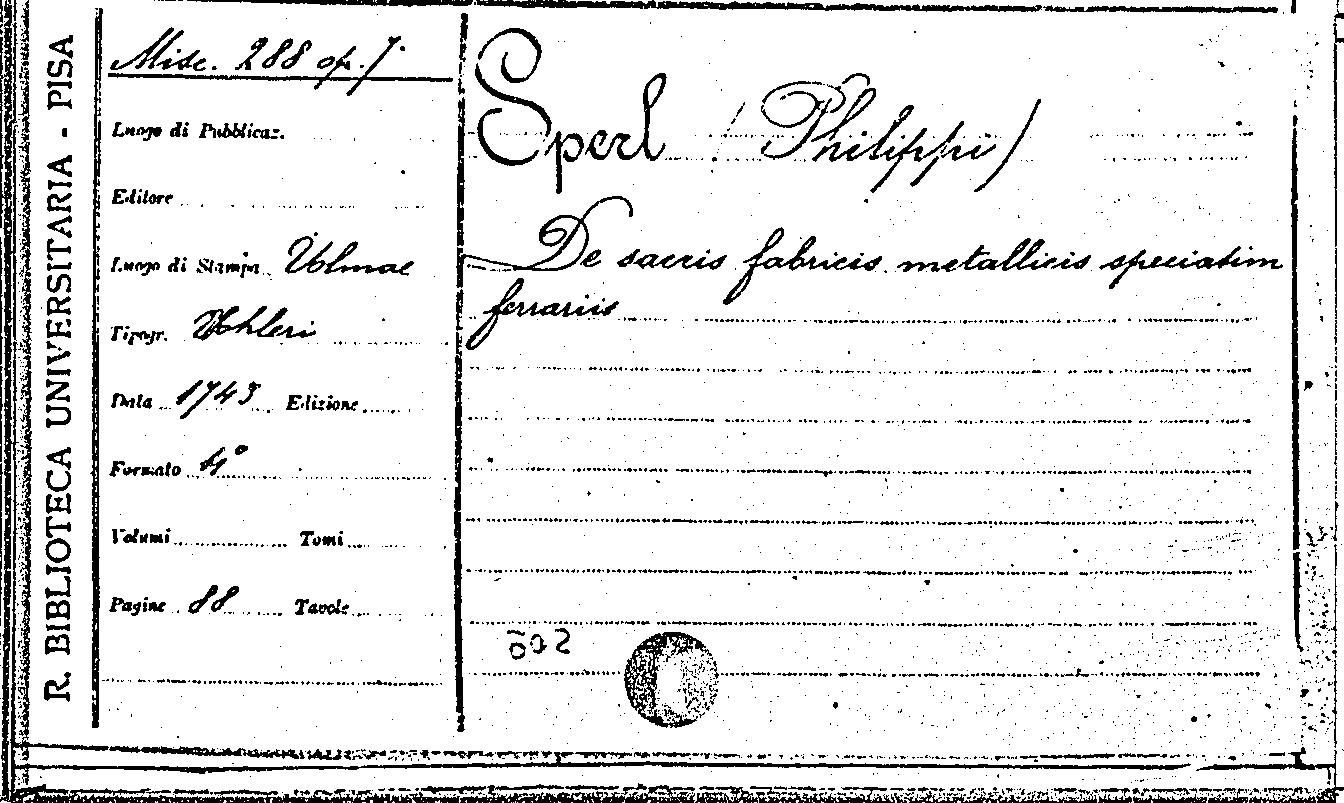 R. BIBLIOTECA UNIVERSITARIA - PISA
Misc. 288 op. 7.
Luogo di Pubblicaz.
Editore
Luogo di Stampa Ulmae
Tipogr. Wohleri
Data 1743 Edizione
Formato 4°
Volumi Tomi
Pagine 88 Tavole
Sperl (Philippi)
De sacris fabricis metallicis speciatim
ferrariis